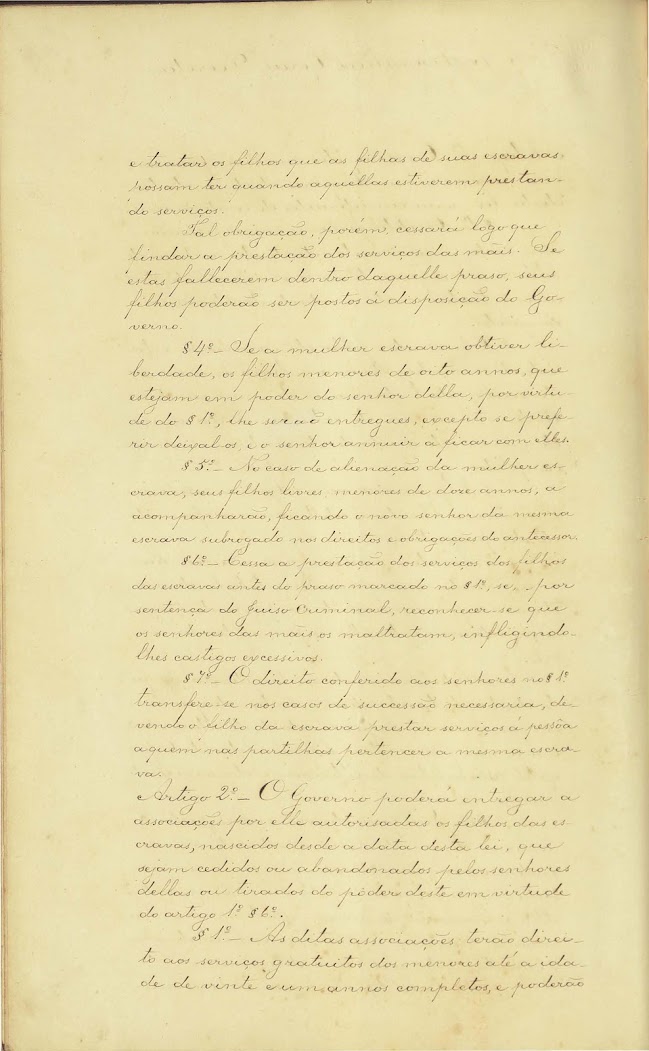 e tratar os filhos que as filhas de suas escravas
possam ter quando aquellas estiverem prestan-
do serviços.
Tal obrigação, porém, cessará logo que
findar a prestação dos serviços das mãis. Se
estas fallecerem dentro daquelle praso, seus
filhos poderão ser postos á disposição do Go-
verno.
§ 4º_ Se a mulher escrava obtiver li-
berdade, os filhos menores de oito annos, que
estejam em poder do senhor della, por virtu-
de do § 1º, lhe serão entregues, excepto se prefe-
rir deixal-os, e o senhor annuir á ficar com elles.
§ 5º_ No caso de alienação da mulher es-
crava, seus filhos livres, menores de doze annos, a
acompanharão, ficando o novo senhor da mesma
escrava subrogado nos direitos e obrigações do antecessor.
§ 6º_ Cessa a prestação dos serviços dos filhos
das escravas antes do praso marcado no § 1º, se_ por
sentença do Juiso Criminal, reconhecer-se que
os senhores das mãis os maltratam, infligindo-
lhes castigos excessivos.
§ 7º_ O direito conferido aos senhores no § 1º
transfere-se nos casos de successão necessaria, de-
vendo o filho da escrava prestar serviços á pessôa
a quem nas partilhas pertencer a mesma escra-
va.
Artigo 2º_ O Governo poderá entregar a
associações por elle autorisadas os filhos das es-
cravas, nascidos desde a data desta lei, que
sejam cedidos ou abandonados pelos senhores
dellas ou tirados do poder deste em virtude
do artigo 1º § 6º.
§ 1º_ As ditas associações terão direi-
to aos serviços gratuitos dos menores até a ida-
de de vinte e um annos completos, e poderão